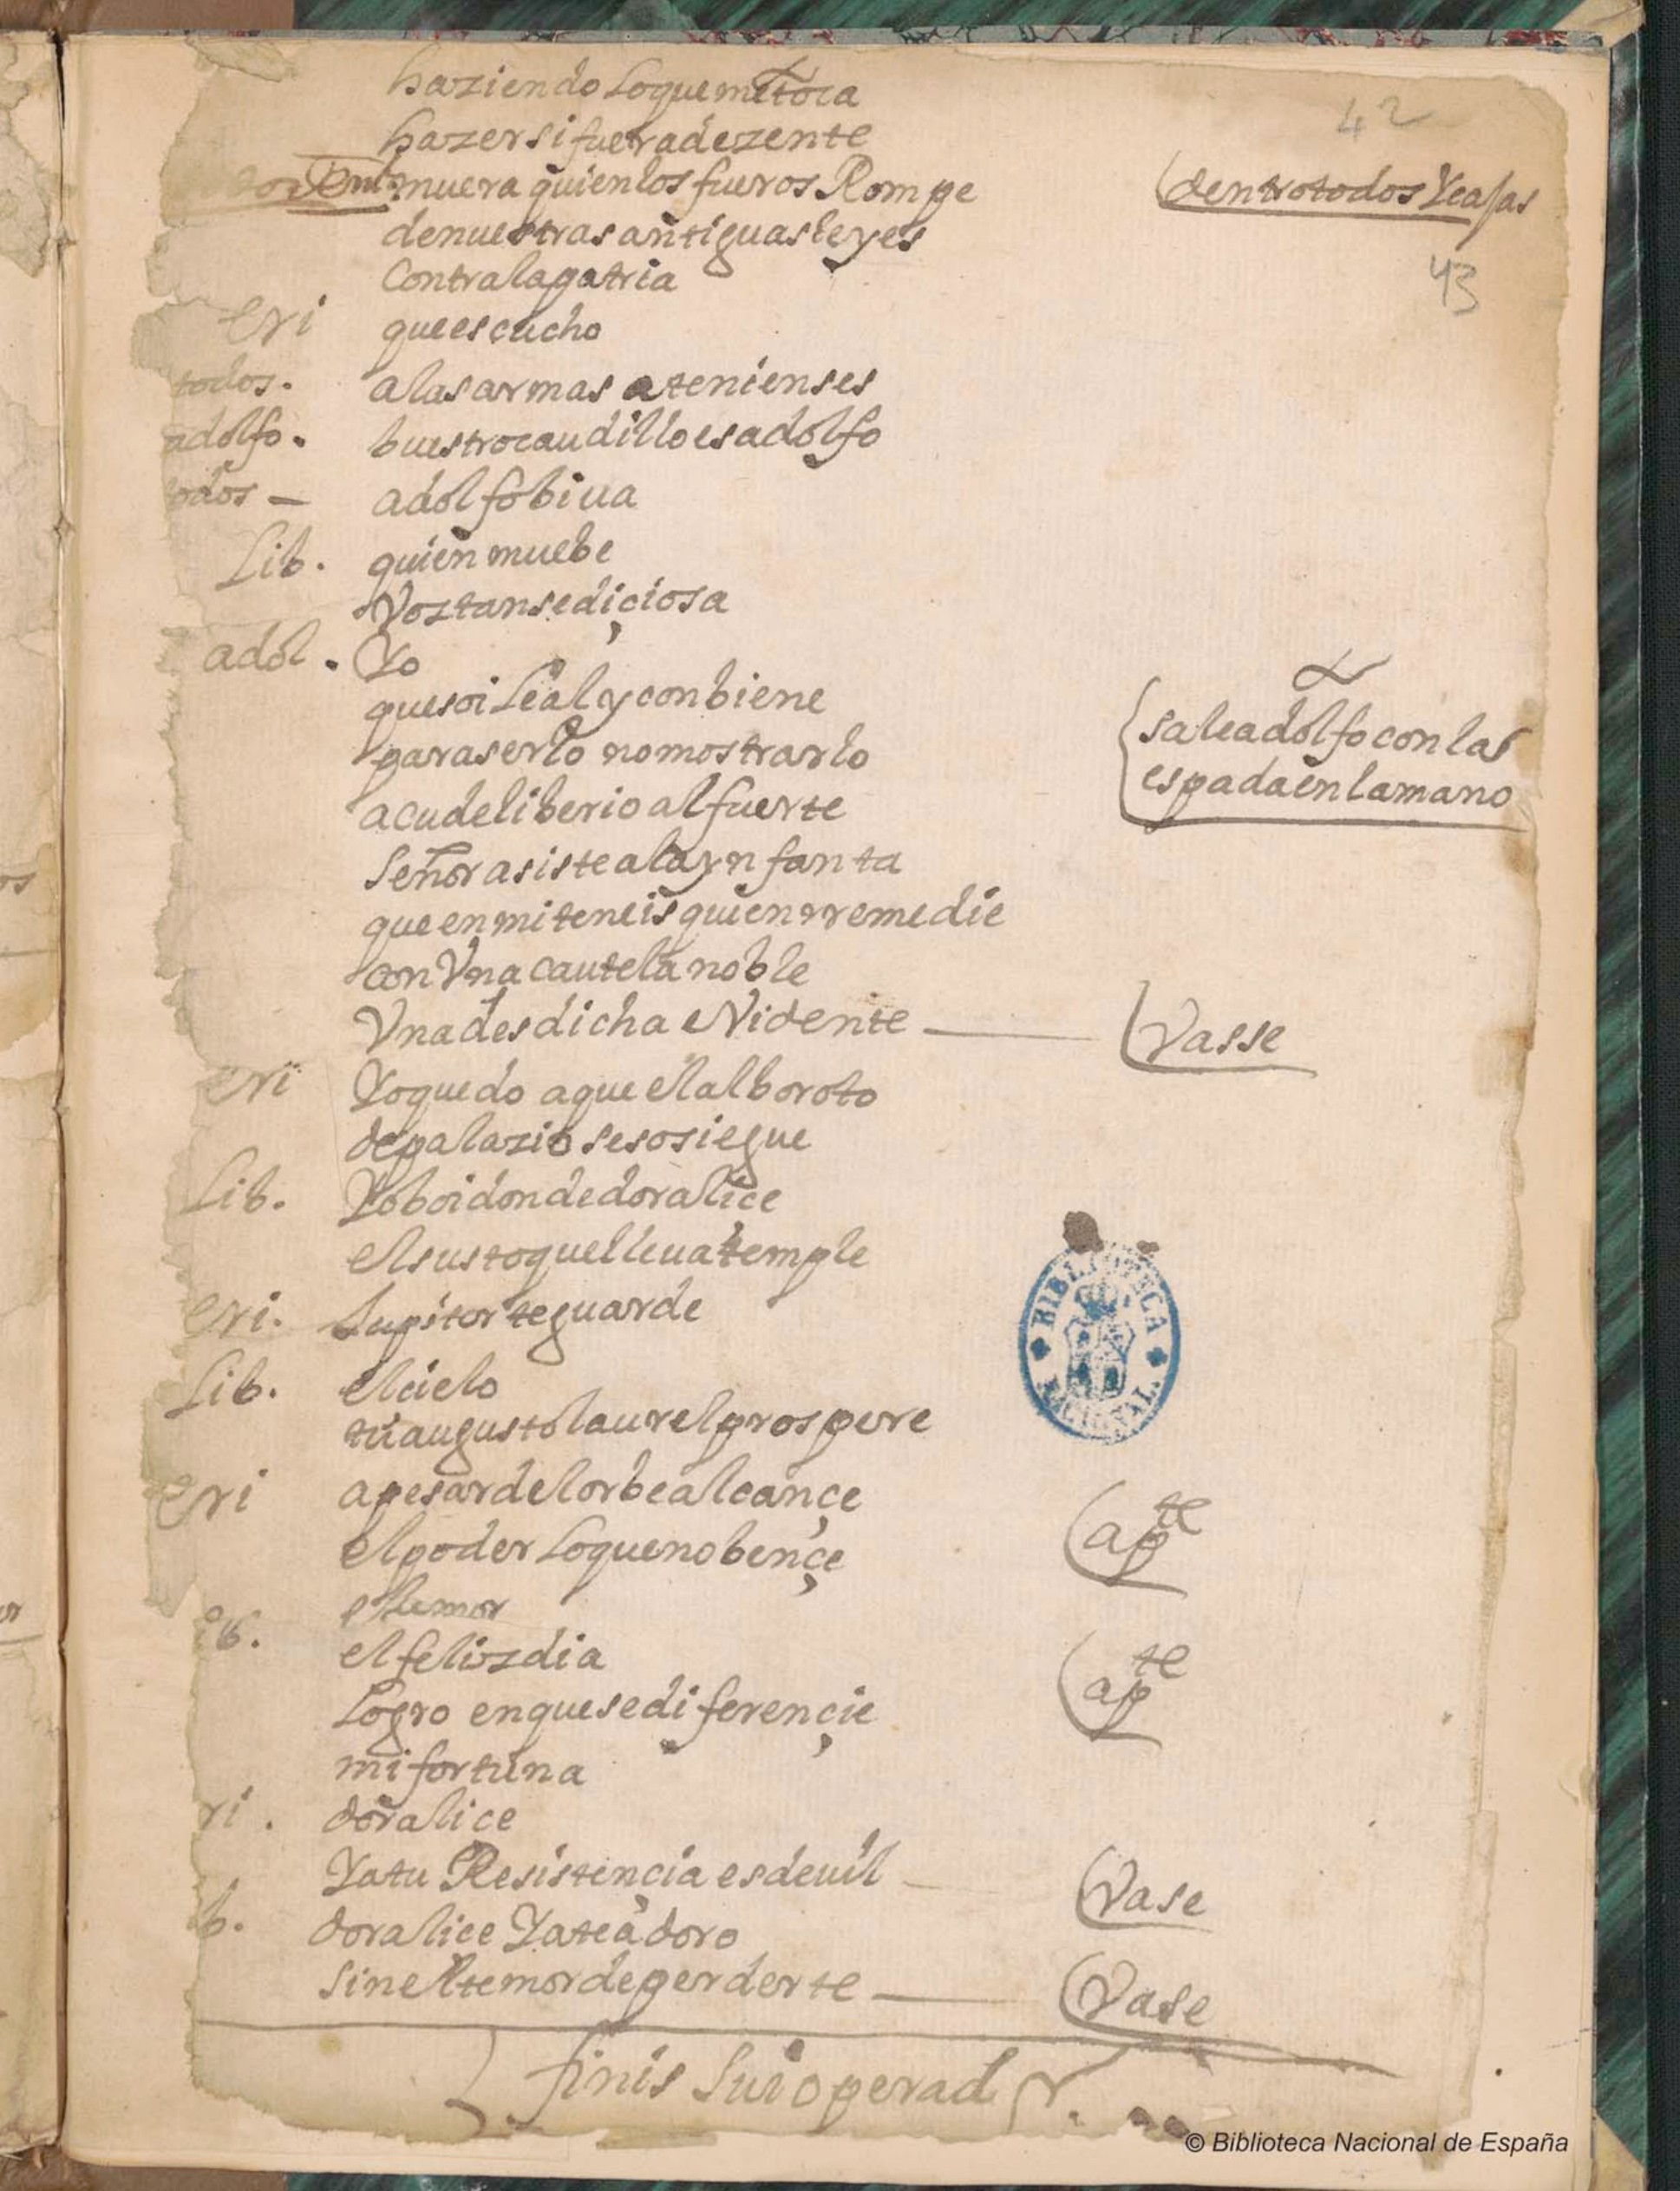 haziendo lo que me toca
42
hazer si fuera dezente
Dentº muera quien los fueros Rompe (dentro todos Y cajas
de nuestras antiguas leyes
Contra la patria
43
eri que escucho
todos. a las armas atenienses
adolfo. buestro caudillo es adolfo
todos - adolfo biua
Lib. quien muebe
Voz tan sediçiosa
adol. Yo
que soi Leal y conbiene
para serlo no mostrarlo (sale adolfo con las
acude liberio al fuerte espada en la mano
Señor asiste a la ynfanta
que en mi teneis quien rremedie
con Vna cautela noble
Vna desdicha eVidente (Vasse
eri Yo quedo a que el alboroto
de palazio se sosiegue
Lib. Yo boi donde doralice
el susto que lleua temple
eri. Jupitor te guarde
Lib. el cielo
tu augusto laurel prospere
BIBLIOTECA NACIONAL
eri a pesar del orbe alcançe (apte
el poder lo que no bençe
el temor
ib. el feliz dia (apte
Logro en que se diferençie
mi fortuna
ri. doralice
Ya tu Resistençia es deuil (Vase
b. doralice Ya te adoro
sin el temor de perderte (Vase
finis
© Biblioteca Nacional de España